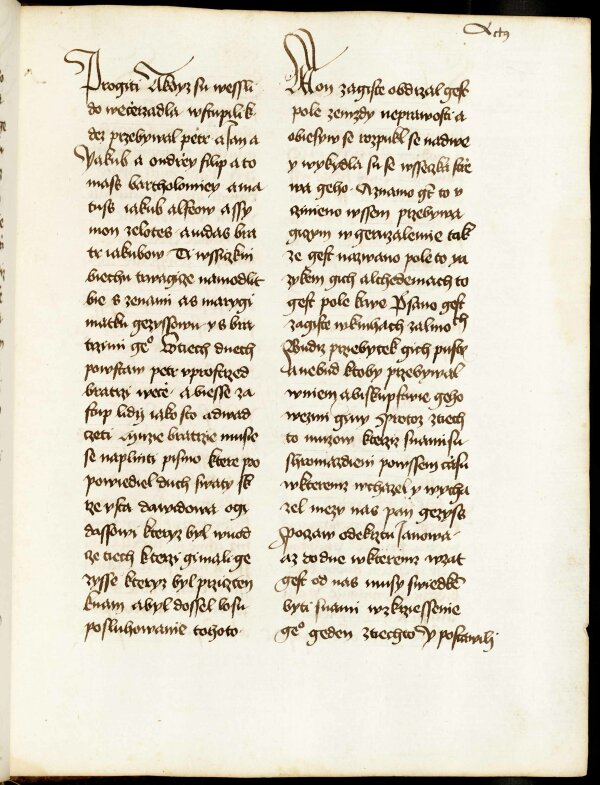 Act9
Progiti Akdyz su wessli
do weczerzadla wstupili k
dez przebywal petr a Jan a
Yakub a ondrzey filip a to
mass bartholomiey a ma
tuss iakub alfeow a ssy
mon zelotes a udas bra
tr iakubow Ti wssiczkni
biechu trwagize na modlit
bie s zenami a s marygi
matku gezyssowu y s bra
trzimi geo Wtiech dnech
powstaw petr vprostrzed
bratrzi wece a biesse za
stup lidij iako sto a dwad
czeti Muzie bratrzie musie
se naplniti pismo ktere przo
powiediel duch swaty sk
rze vsta dawidowa o gi
dassowi kteryz byl wuod
cze tiech kterzi gimali ge
zysse kteryz byl przicten
knam a byl dossel losu
posluhowanie tohoto
A on zagiste obdrzal gest
pole ze mzdy neprawosti a
obiesyw se rozpukl se na dwe
y wykydla su se wssecka strze
wa geho A znamo gt to v
czinieno wssem przebywa
gicym w geruzalemie tak
ze gest nazwano pole to ya
zykem gich alchedemach to
gest pole krwe Psano gest
zagiste w knihach zalmoch
Budiz przebytek gich pusty
a nebud ktoby przebywal
w niem a biskupstwie geho
wezmi giny Protoz z tiech
to muzow kterziz s nami su
shromazdieni po wssem czasu
w kteremz wchazel y wycha
zel mezy nas pan gezyss
Poczaw od krztu Janowa
az do dne w kteremz wzat
gest od nas musy swiedke
byti s nami wzkrziessenie
geo geden z tiechto Y postawili